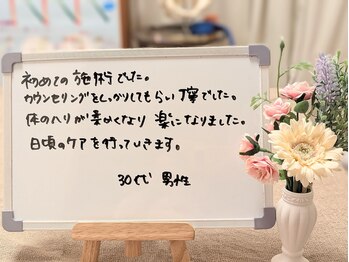 初めての施術でした。
カウンセリングをしっかりしてもらい丁寧でした。
体のハリが柔かくなり 楽になりました。
日頃のケアを行っていきます。
30代 男性